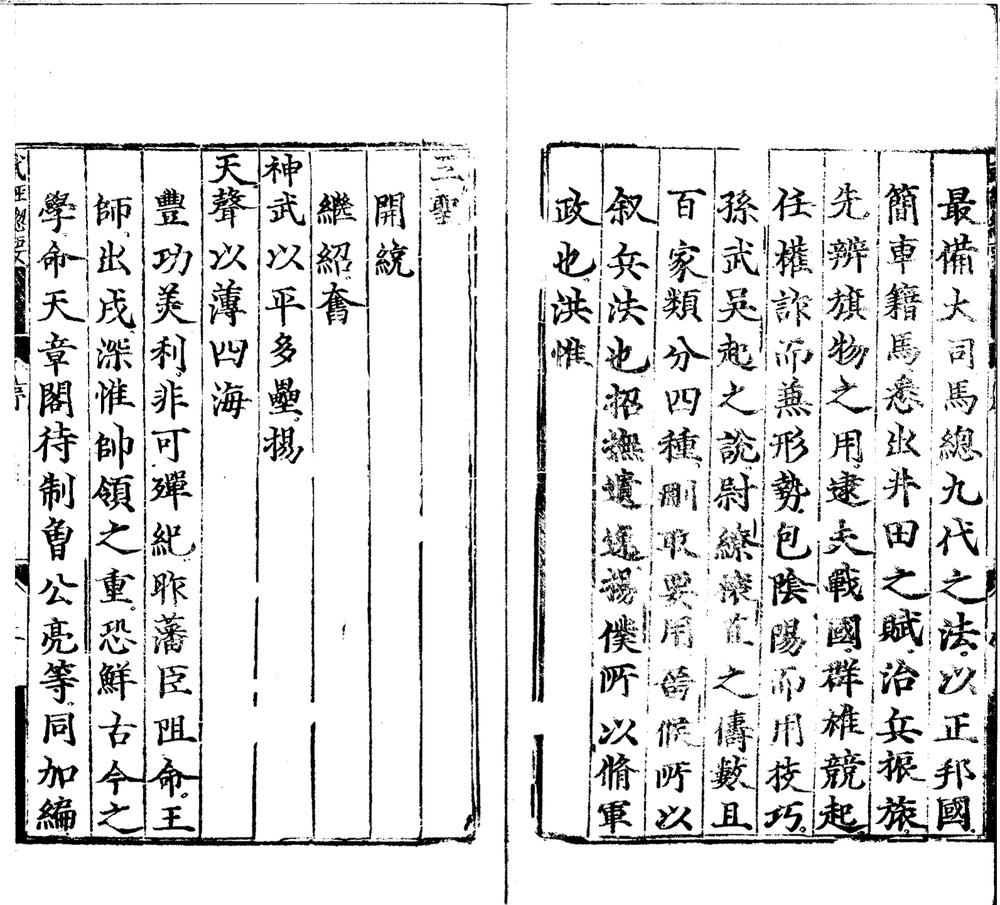 最備大司馬總九代之法以正邦國
簡車籍馬悉出井田之賦治兵振旅
先辨旗物之用逮夫戰國群雄競起
任權詐而兼形勢包陰陽而用技巧
孫武吳起之說尉繚穰苴之儔數且
百家類分四種刪取要用諸侯所以
叙兵法也招撫遺逸揚僕所以脩軍
政也洪惟
三聖
開統
繼紹奮
神武以平多壘揚
天聲以薄四海
豐功美利非可殫紀昨藩臣阻命王
師出戍深惟帥領之重恐鮮古今之
學命天章閣待制曾公亮等同加編
武經總要
序
二